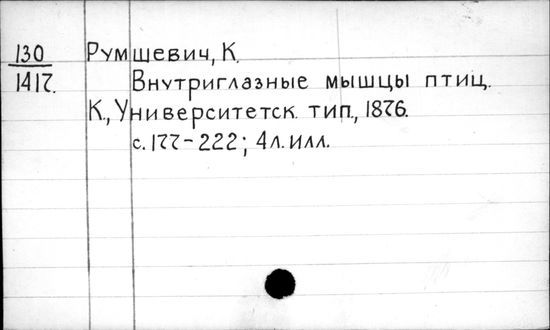 130 Румшевич, К.
1417. Внутриглазные мышцы птиц.
К., Университетск. тип., 1876.
с. 177-222; 4 л. илл.